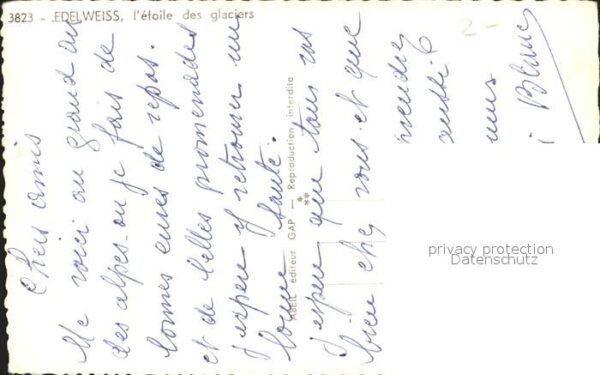 3823 - EDELWEISS, l'étoile des glaciers
Chers amis
Me voici au grand air
des alpes. ou je fais de
bonnes cures de repos.
et de belles promenades
J'espere y retrouver un
bonne santé.
J'espere que tous vas
bien chez vous. et que
ABEIL éditeur GAP — Reproduction interdite
viendra
aussi
nous
Blanc
2-
privacy protection
Datenschutz